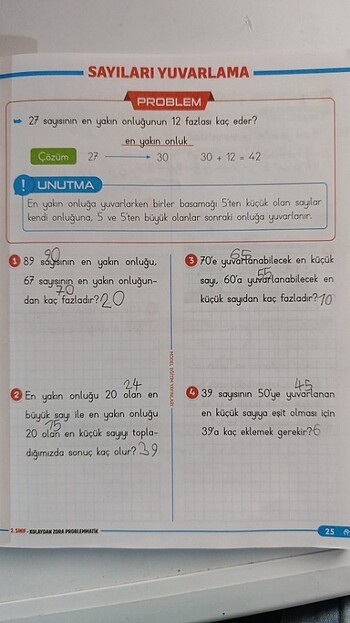 SAYILARI YUVARLAMA
PROBLEM
27 sayısının en yakın onluğunun 12 fazlası kaç eder?
en yakın onluk
Çözüm 27 30 30 + 12 = 42
! UNUTMA
En yakın onluğa yuvarlarken birler basamağı 5'ten küçük olan sayılar
kendi onluğuna, 5 ve 5'ten büyük olanlar sonraki onluğa yuvarlanır.
90
1 89 sayısının en yakın onluğu,
67 sayısının en yakın onluğun-
70
dan kaç fazladır? 20
24
2 En yakın onluğu 20 olan en
büyük sayı ile en yakın onluğu
15
20 olan en küçük sayıyı topla-
dığımızda sonuç kaç olur? 39
65
3 70'e yuvarlanabilecek en küçük
55
sayı, 60'a yuvarlanabilecek en
küçük sayıdan kaç fazladır? 10
45
4 39 sayısının 50'ye yuvarlanan
en küçük sayıya eşit olması için
39'a kaç eklemek gerekir? 6
MODEL EĞİTİM YAYINLARI
2. SINIF - KOLAYDAN ZORA PROBLEMMATİK
25